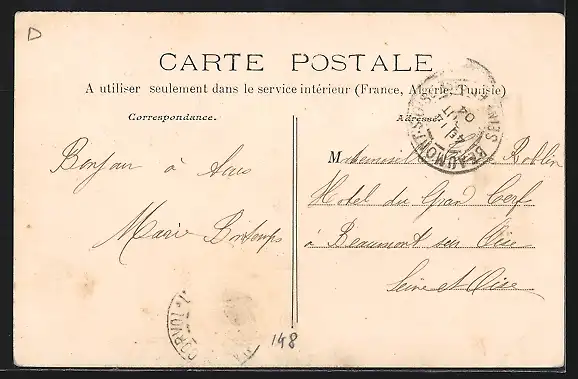 D
CARTE POSTALE
A utiliser seulement dans le service intérieur (France, Algérie, Tunisie)
Correspondance.
Adresse.
BEAUMONT-S-OISE
SEINE
04
Bonjour à tous
Marie
Mademoiselle Roblin
Hotel du Grand Cerf
à Beaumont sur Oise
Seine et Oise
148